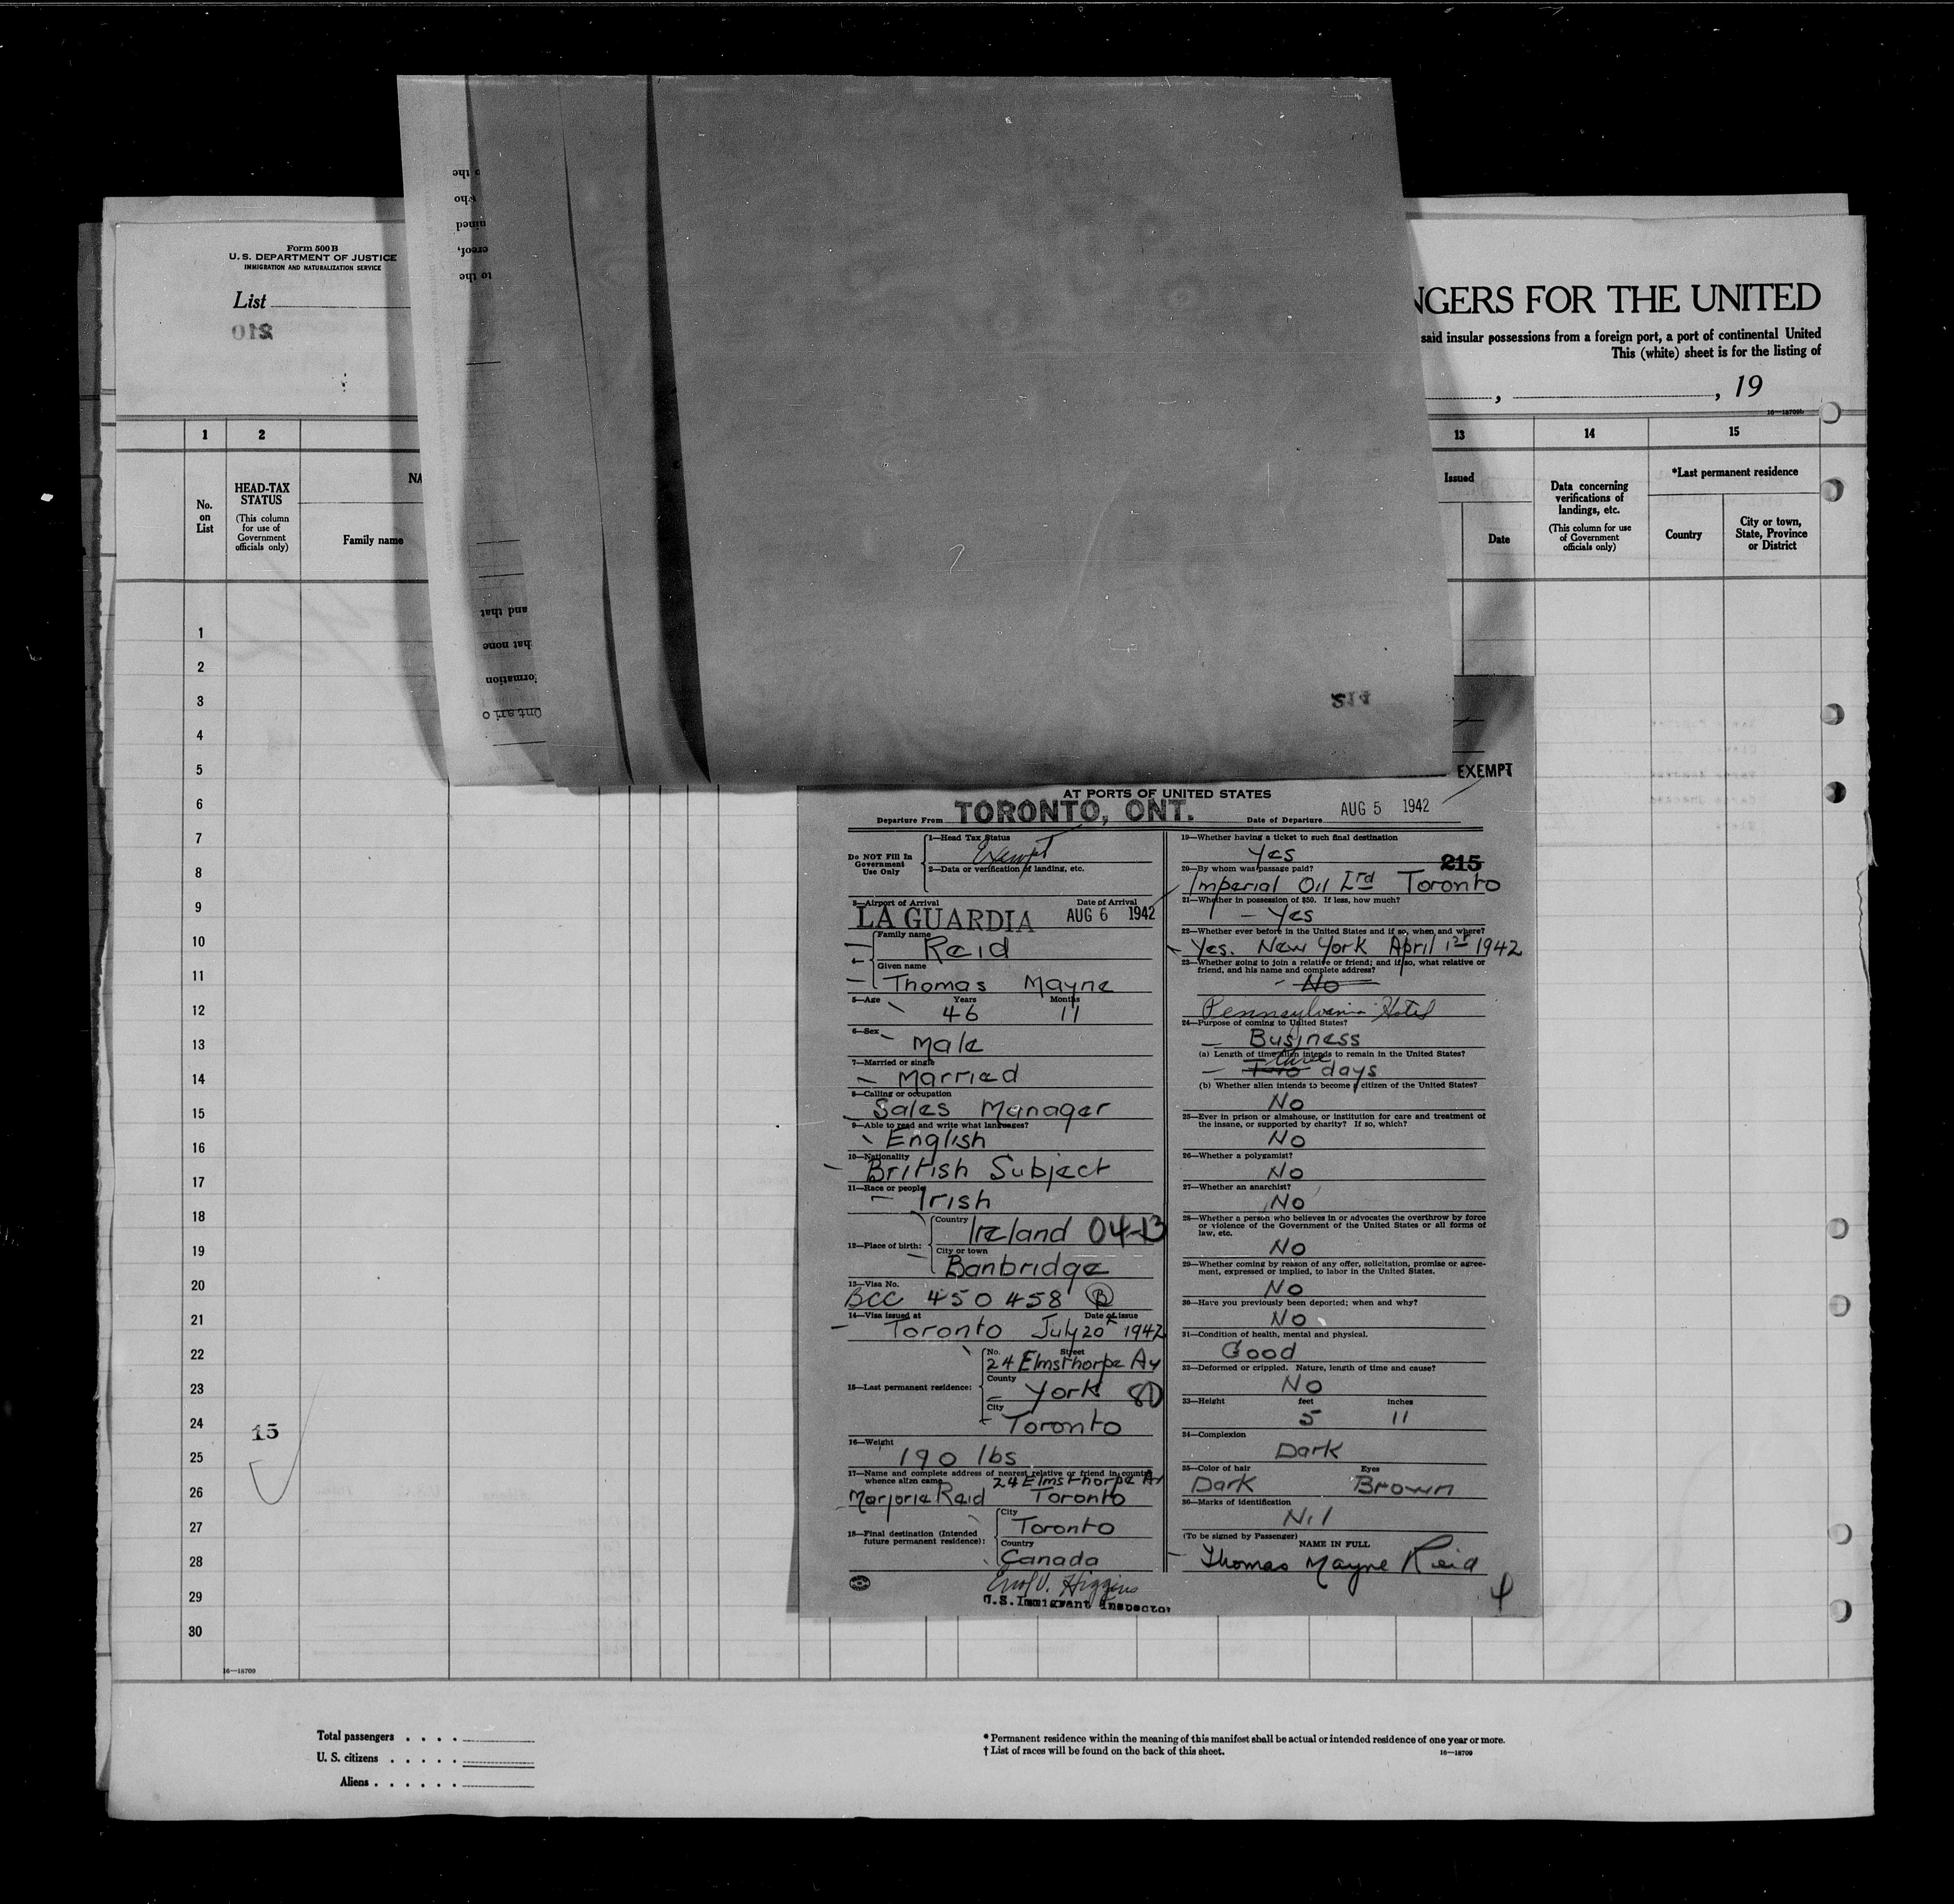 Form 500 B
U. S. DEPARTMENT OF JUSTICE
IMMIGRATION AND NATURALIZATION SERVICE
List
210
NGERS FOR THE UNITED
said insular possessions from a foreign port, a port of continental United
This (white) sheet is for the listing of
, , 19
16—18709b
1 2 13 14 15
No. on List
HEAD-TAX STATUS
(This column for use of Government officials only)
NA
Family name
Issued
Date
Data concerning verifications of landings, etc.
(This column for use of Government officials only)
*Last permanent residence
Country
City or town, State, Province or District
o the
who
mined
ereof,
to the
and that
that none
formation
Ontario
214
1
2
3
4
5
6
7
8
9
10
11
12
13
14
15
16
17
18
19
20
21
22
23
24
25
26
27
28
29
30
15
16—18709
EXEMPT
AT PORTS OF UNITED STATES
Departure From TORONTO, ONT. Date of Departure AUG 5 1942
Do NOT Fill In Government Use Only
1—Head Tax Status
Exempt
2—Data or verification of landing, etc.
3—Airport of Arrival Date of Arrival
LA GUARDIA AUG 6 1942
4—
Family name
Reid
Given name
Thomas Mayne
5—Age Years Months
46 11
6—Sex
Male
7—Married or single
Married
8—Calling or occupation
Sales Manager
9—Able to read and write what languages?
English
10—Nationality
British Subject
11—Race or people
Irish
12—Place of birth:
Country
Ireland 04-13
City or town
Banbridge
13—Visa No.
BCC 450458 B
14—Visa issued at Date of issue
Toronto July 20 1942
15—Last permanent residence:
No. Street
24 Elmsthorpe Av
County
York 80
City
Toronto
16—Weight
190 lbs
17—Name and complete address of nearest relative or friend in country
whence alien came
24 Elmsthorpe Av
Marjorie Reid Toronto
18—Final destination (Intended future permanent residence):
City
Toronto
Country
Canada
Higgins
U.S. Immigrant Inspector
19—Whether having a ticket to such final destination
Yes
215
20—By whom was passage paid?
Imperial Oil Ltd Toronto
21—Whether in possession of $50. If less, how much?
Yes
22—Whether ever before in the United States and if so, when and where?
Yes. New York April 1st 1942
23—Whether going to join a relative or friend; and if so, what relative or
friend, and his name and complete address?
No
Pennsylvania Hotel
24—Purpose of coming to United States?
Business
(a) Length of time alien intends to remain in the United States?
three
Two days
(b) Whether alien intends to become citizen of the United States?
No
25—Ever in prison or almshouse, or institution for care and treatment of
the insane, or supported by charity? If so, which?
No
26—Whether a polygamist?
No
27—Whether an anarchist?
No
28—Whether a person who believes in or advocates the overthrow by force
or violence of the Government of the United States or all forms of
law, etc.
No
29—Whether coming by reason of any offer, solicitation, promise or agree-
ment, expressed or implied, to labor in the United States.
No
30—Have you previously been deported; when and why?
No
31—Condition of health, mental and physical.
Good
32—Deformed or crippled. Nature, length of time and cause?
No
33—Height feet inches
5 11
34—Complexion
Dark
35—Color of hair Eyes
Dark Brown
36—Marks of identification
Nil
(To be signed by Passenger)
NAME IN FULL
Thomas Mayne Reid
Total passengers . . . .
U. S. citizens . . . . .
Aliens . . . . . .
* Permanent residence within the meaning of this manifest shall be actual or intended residence of one year or more.
† List of races will be found on the back of this sheet.
16—18709